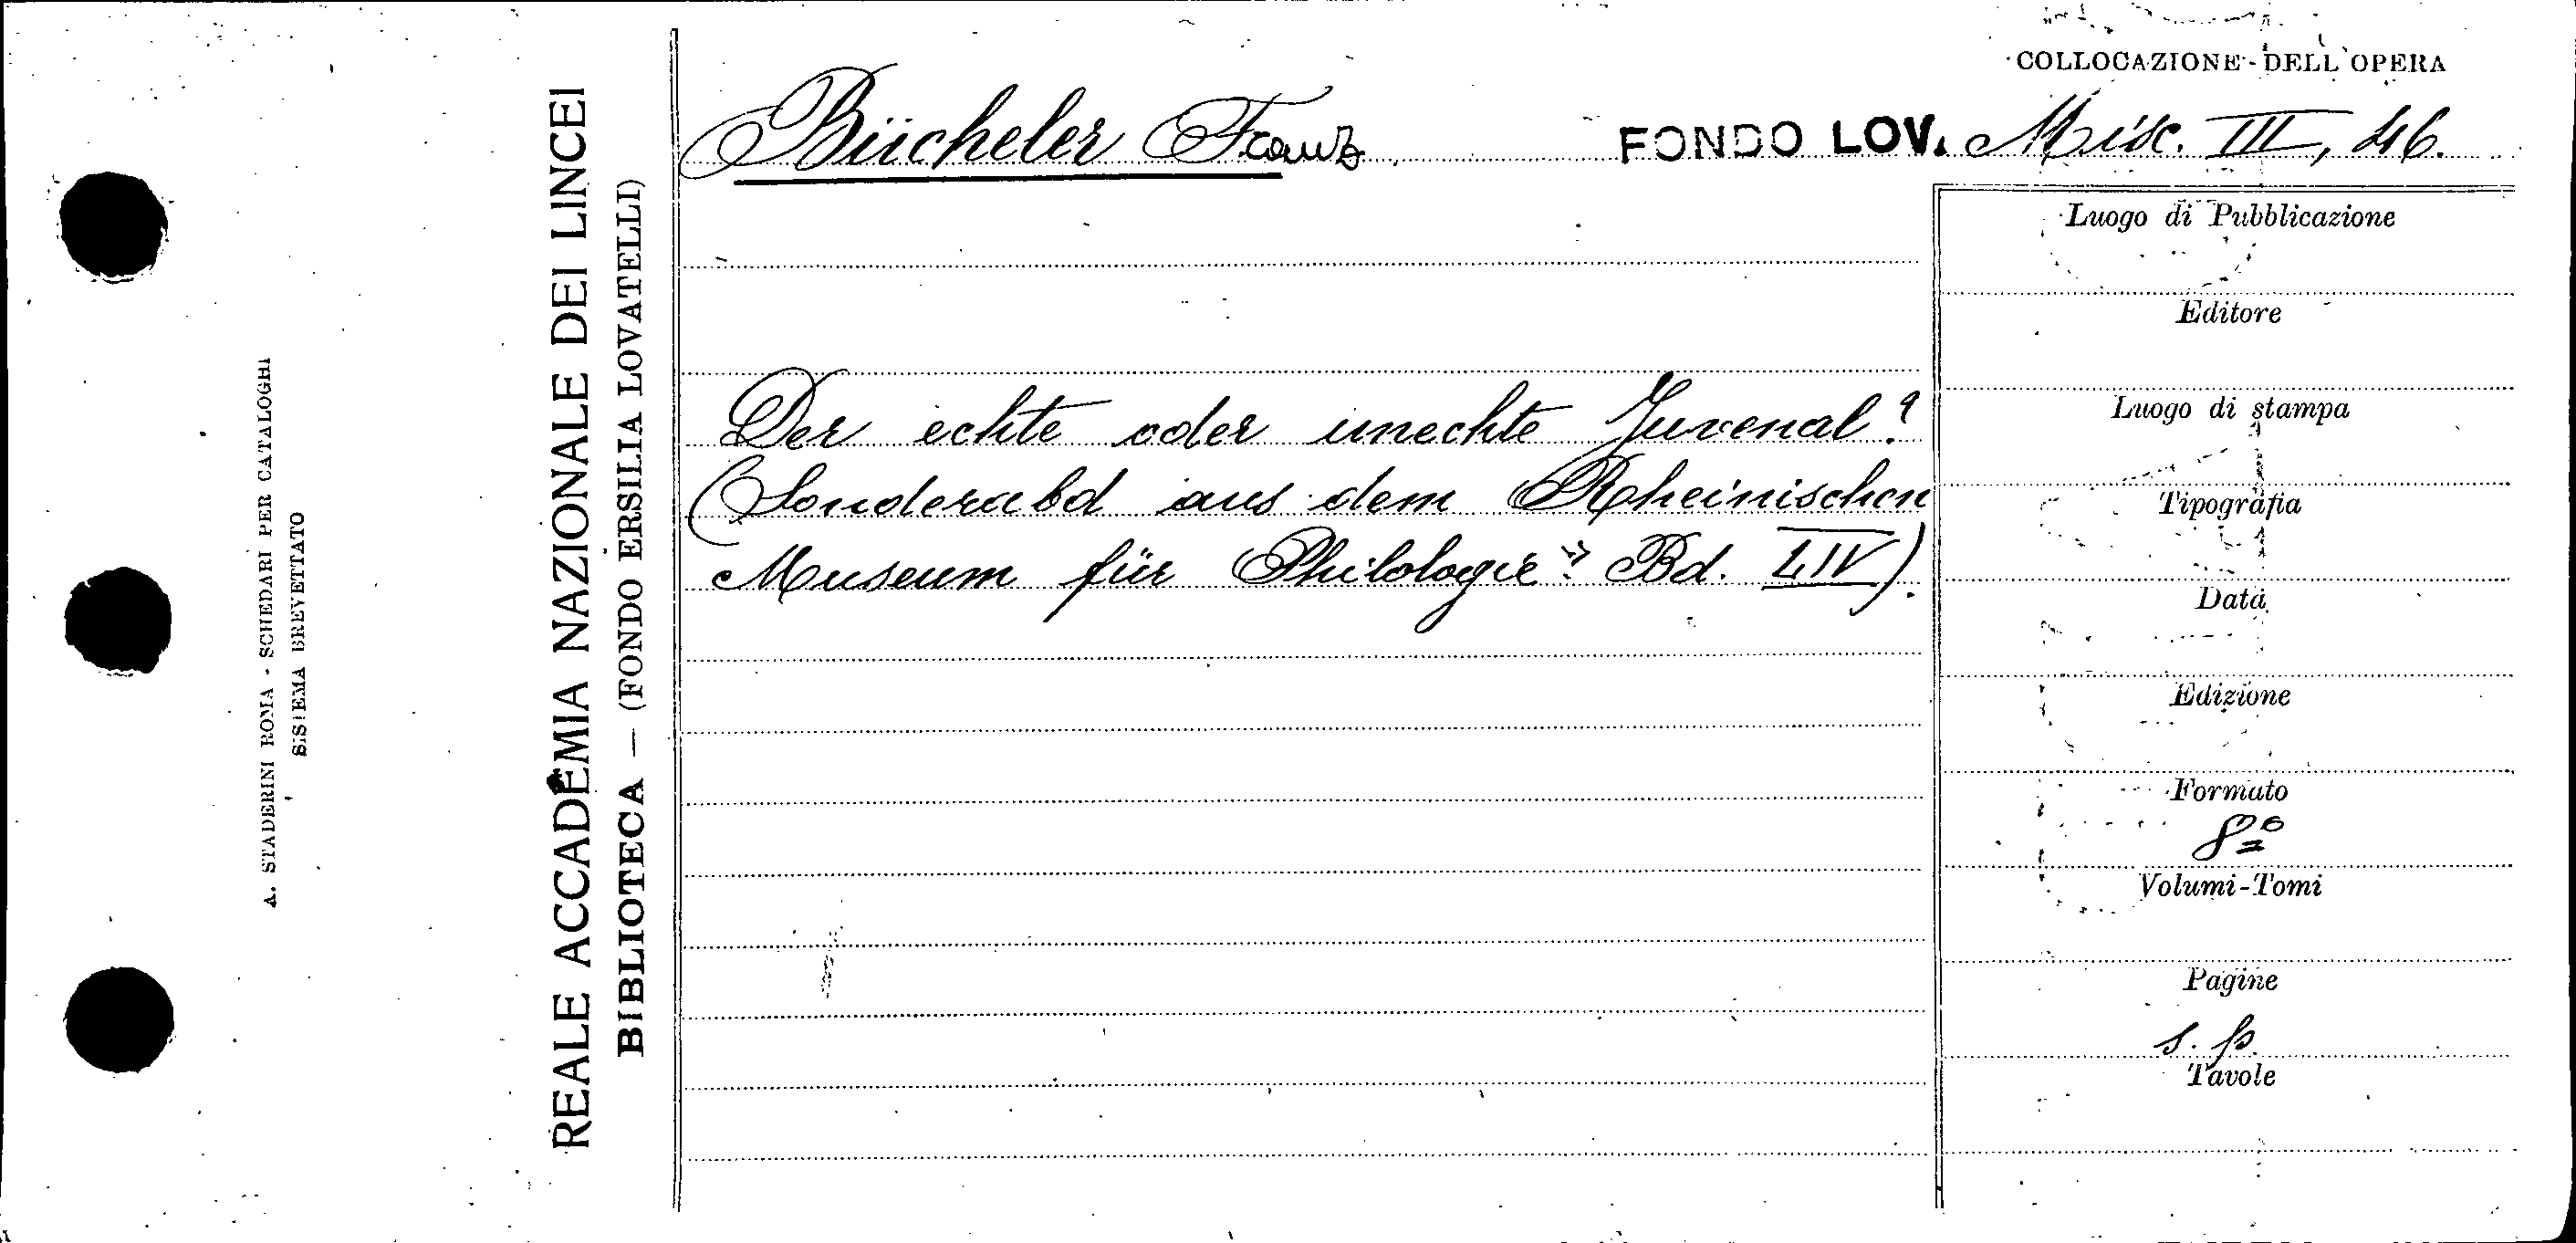 COLLOCAZIONE DELL'OPERA
Bücheler Franz
FONDO LOV. Misc. III, 46.
Der echte oder unechte Juvenal?
(Sonderabd aus dem Rheinischen
Museum für Philologie" Bd. LIV).
Luogo di Pubblicazione
Editore
Luogo di stampa
Tipografia
Data
Edizione
Formato
8º
Volumi-Tomi
Pagine
s. p.
Tavole
REALE ACCADEMIA NAZIONALE DEI LINCEI
BIBLIOTECA — (FONDO ERSILIA LOVATELLI)
A. STADERINI ROMA - SCHEDARI PER CATALOGHI
SISTEMA BREVETTATO